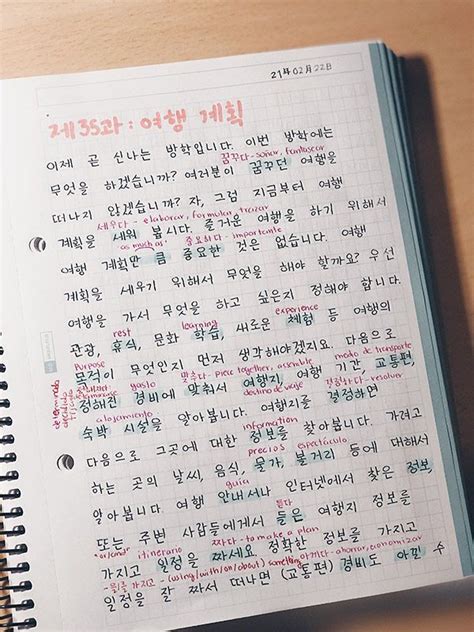 21年 02月 22日
제35과: 여행 계획
이제 곧 신나는 방학입니다. 이번 방학에는
꿈꾸다 - soñar, fantasear
무엇을 하겠습니까? 여러분이 꿈꾸던 여행을
떠나지 않겠습니까? 자, 그럼 지금부터 여행
세우다 - elaborar, formular, trazar
계획을 세워 봅시다. 즐거운 여행을 하기 위해서
as much as 중요하다 - importante
여행 계획만큼 중요한 것은 없습니다. 여행
계획을 세우기 위해서 무엇을 해야 할까요? 우선
여행을 가서 무엇을 하고 싶은지 정해야 합니다.
rest learning experience
관광, 휴식, 문화 학습, 새로운 체험 등 여행의
purpose
목적이 무엇인지 먼저 생각해야겠지요. 다음으로
gasto 맞추다 - piece together, assemble modo de transporte
정해진 경비에 맞춰서 여행지, 여행 기간, 교통편,
alojamiento destino de viaje 결정하다 - resolver
숙박 시설을 알아봅니다. 여행지를 결정하면
information
다음으로 그곳에 대한 정보를 찾아봅니다. 가려고
precios espectáculo
하는 곳의 날씨, 음식, 물가, 볼거리 등에 대해서
guía
알아봅니다. 여행 안내서나 인터넷에서 찾은 정보,
듣다
또는 주변 사람들에게서 들은 여행지 정보를
itinerario 짜다 - to make a plan
가지고 일정을 짜세요. 정확한 정보를 가지고
-을(를) 가지고 - (using/with/on/about) something 아끼다 - ahorrar, economizar
일정을 잘 짜서 떠나면 (교통편) 경비도 아낄 수